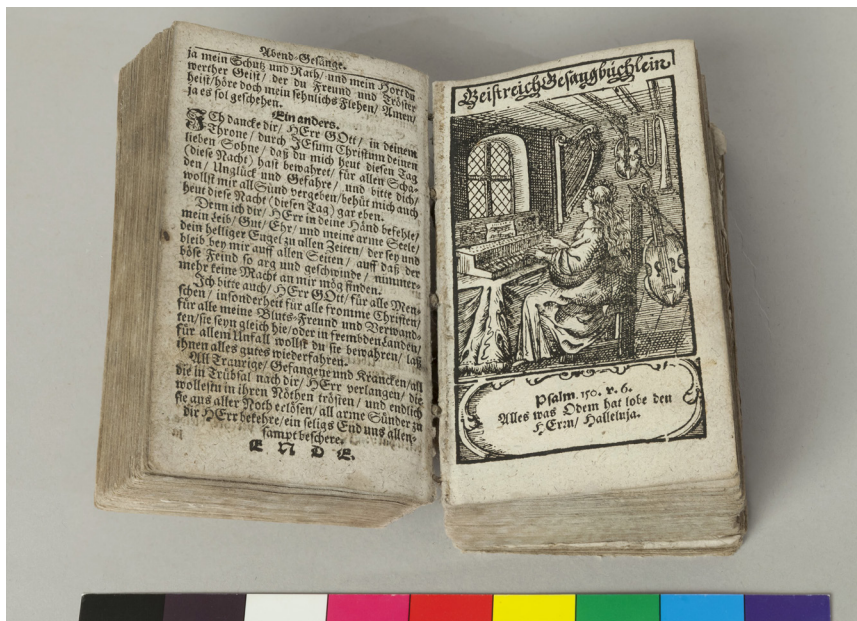 Abend-Gesänge.
ja mein Schutz und Rath/ und mein Hort du
werther Geist/ der du Freund und Tröster
heist/ höre doch mein sehnlichs Flehen/ Amen/
ja es sol geschehen.
Ein anders.
ICh dancke dir/ HErr GOtt/ in deinem
Throne/ durch JEsum Christum deinen
lieben Sohne/ daß du mich heut diesen Tag
(diese Nacht) hast bewahret/ für allen Scha-
den/ Unglück und Gefahre/ und bitte dich/
wollst mir all Sünd vergeben/ behüt mich auch
heut diese Nacht (diesen Tag) gar eben.
Denn ich dir/ HErr in deine Händ befehle/
mein Leib/ Gut/ Ehr/ und meine arme Seele/
dein heiliger Engel zu allen Zeiten/ der sey und
bleib bey mir auff allen Seiten/ auff daß der
böse Feind so arg und geschwinde/ nimmer-
mehr keine Macht an mir mög finden.
Ich bitte auch/ HErr GOtt/ für alle Men-
schen/ insonderheit für alle fromme Christen/
für alle meine Bluts-Freund und Verwand-
ten/ sie seyn gleich hie/ oder in frembden Landen/
für allem Unfall wollst du sie bewahren/ laß
ihnen alles gutes wiederfahren.
All Traurige/ Gefangene und Krancken/ all
die in Trübsal nach dir/ HErr verlangen/ die
wollestu in ihren Nöthen trösten/ und endlich
sie aus aller Noth erlösen/ all arme Sünder zu
dir HErr bekehre/ ein seligs End uns allen-
sampt beschere.
E N D E.
Geistreich Gesangbüchlein
Psalm. 150. v. 6.
Alles was Odem hat lobe den
HErrn/ Halleluja.